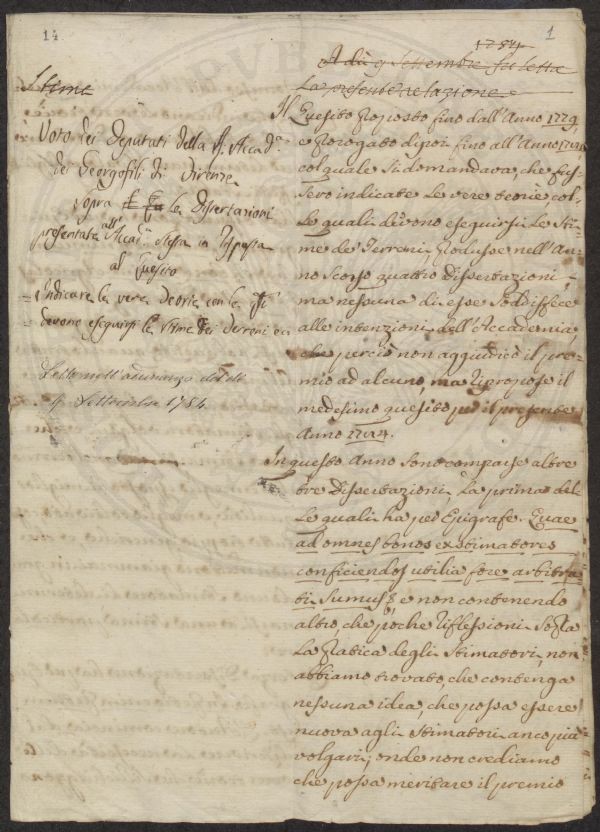 14
1
1784
A dì 9 Settembre fu letta
La presente relazione
Stime
Voto dei Deputati della R. Accad.a
dei Georgofili di Firenze
Sopra le Dissertazioni
presentate all' Accad.a stessa in Risposta
al Quesito
Indicare le vere Teorie con le q.li
devono eseguirsi le Stime dei Terreni
Letto nell' adunanza del dì
9 Settembre 1784
Il Quesito proposto fino dall'Anno 1779,
e prorogato dipoi fino all'Anno
col quale si domandava, che fus-
sero indicate le vere teorie col-
le quali devono eseguirsi le Sti-
me de Terreni, produsse nell'An-
no scorso quattro Dissertazioni,
ma nessuna di esse sodisfece
alle intenzioni dell'Accademia,
che perciò non aggiudicò il pre-
mio ad alcuno, ma ripropose il
medesimo quesito per il presente
Anno
In questo Anno sono comparse altre
tre Dissertazioni. La prima del-
le quali ha per Epigrafe. Quae
ad omnes bonos existimatores
conficiendos utilia fore arbitra-
ti Sumus; e non contenendo
altro, che poche riflessioni sopra
la pratica degli Stimatori, non
abbiamo trovato, che contenga
nessuna idea, che possa essere
nuova agli Stimatori anco più
volgari; onde non crediamo
che possa meritare il premio